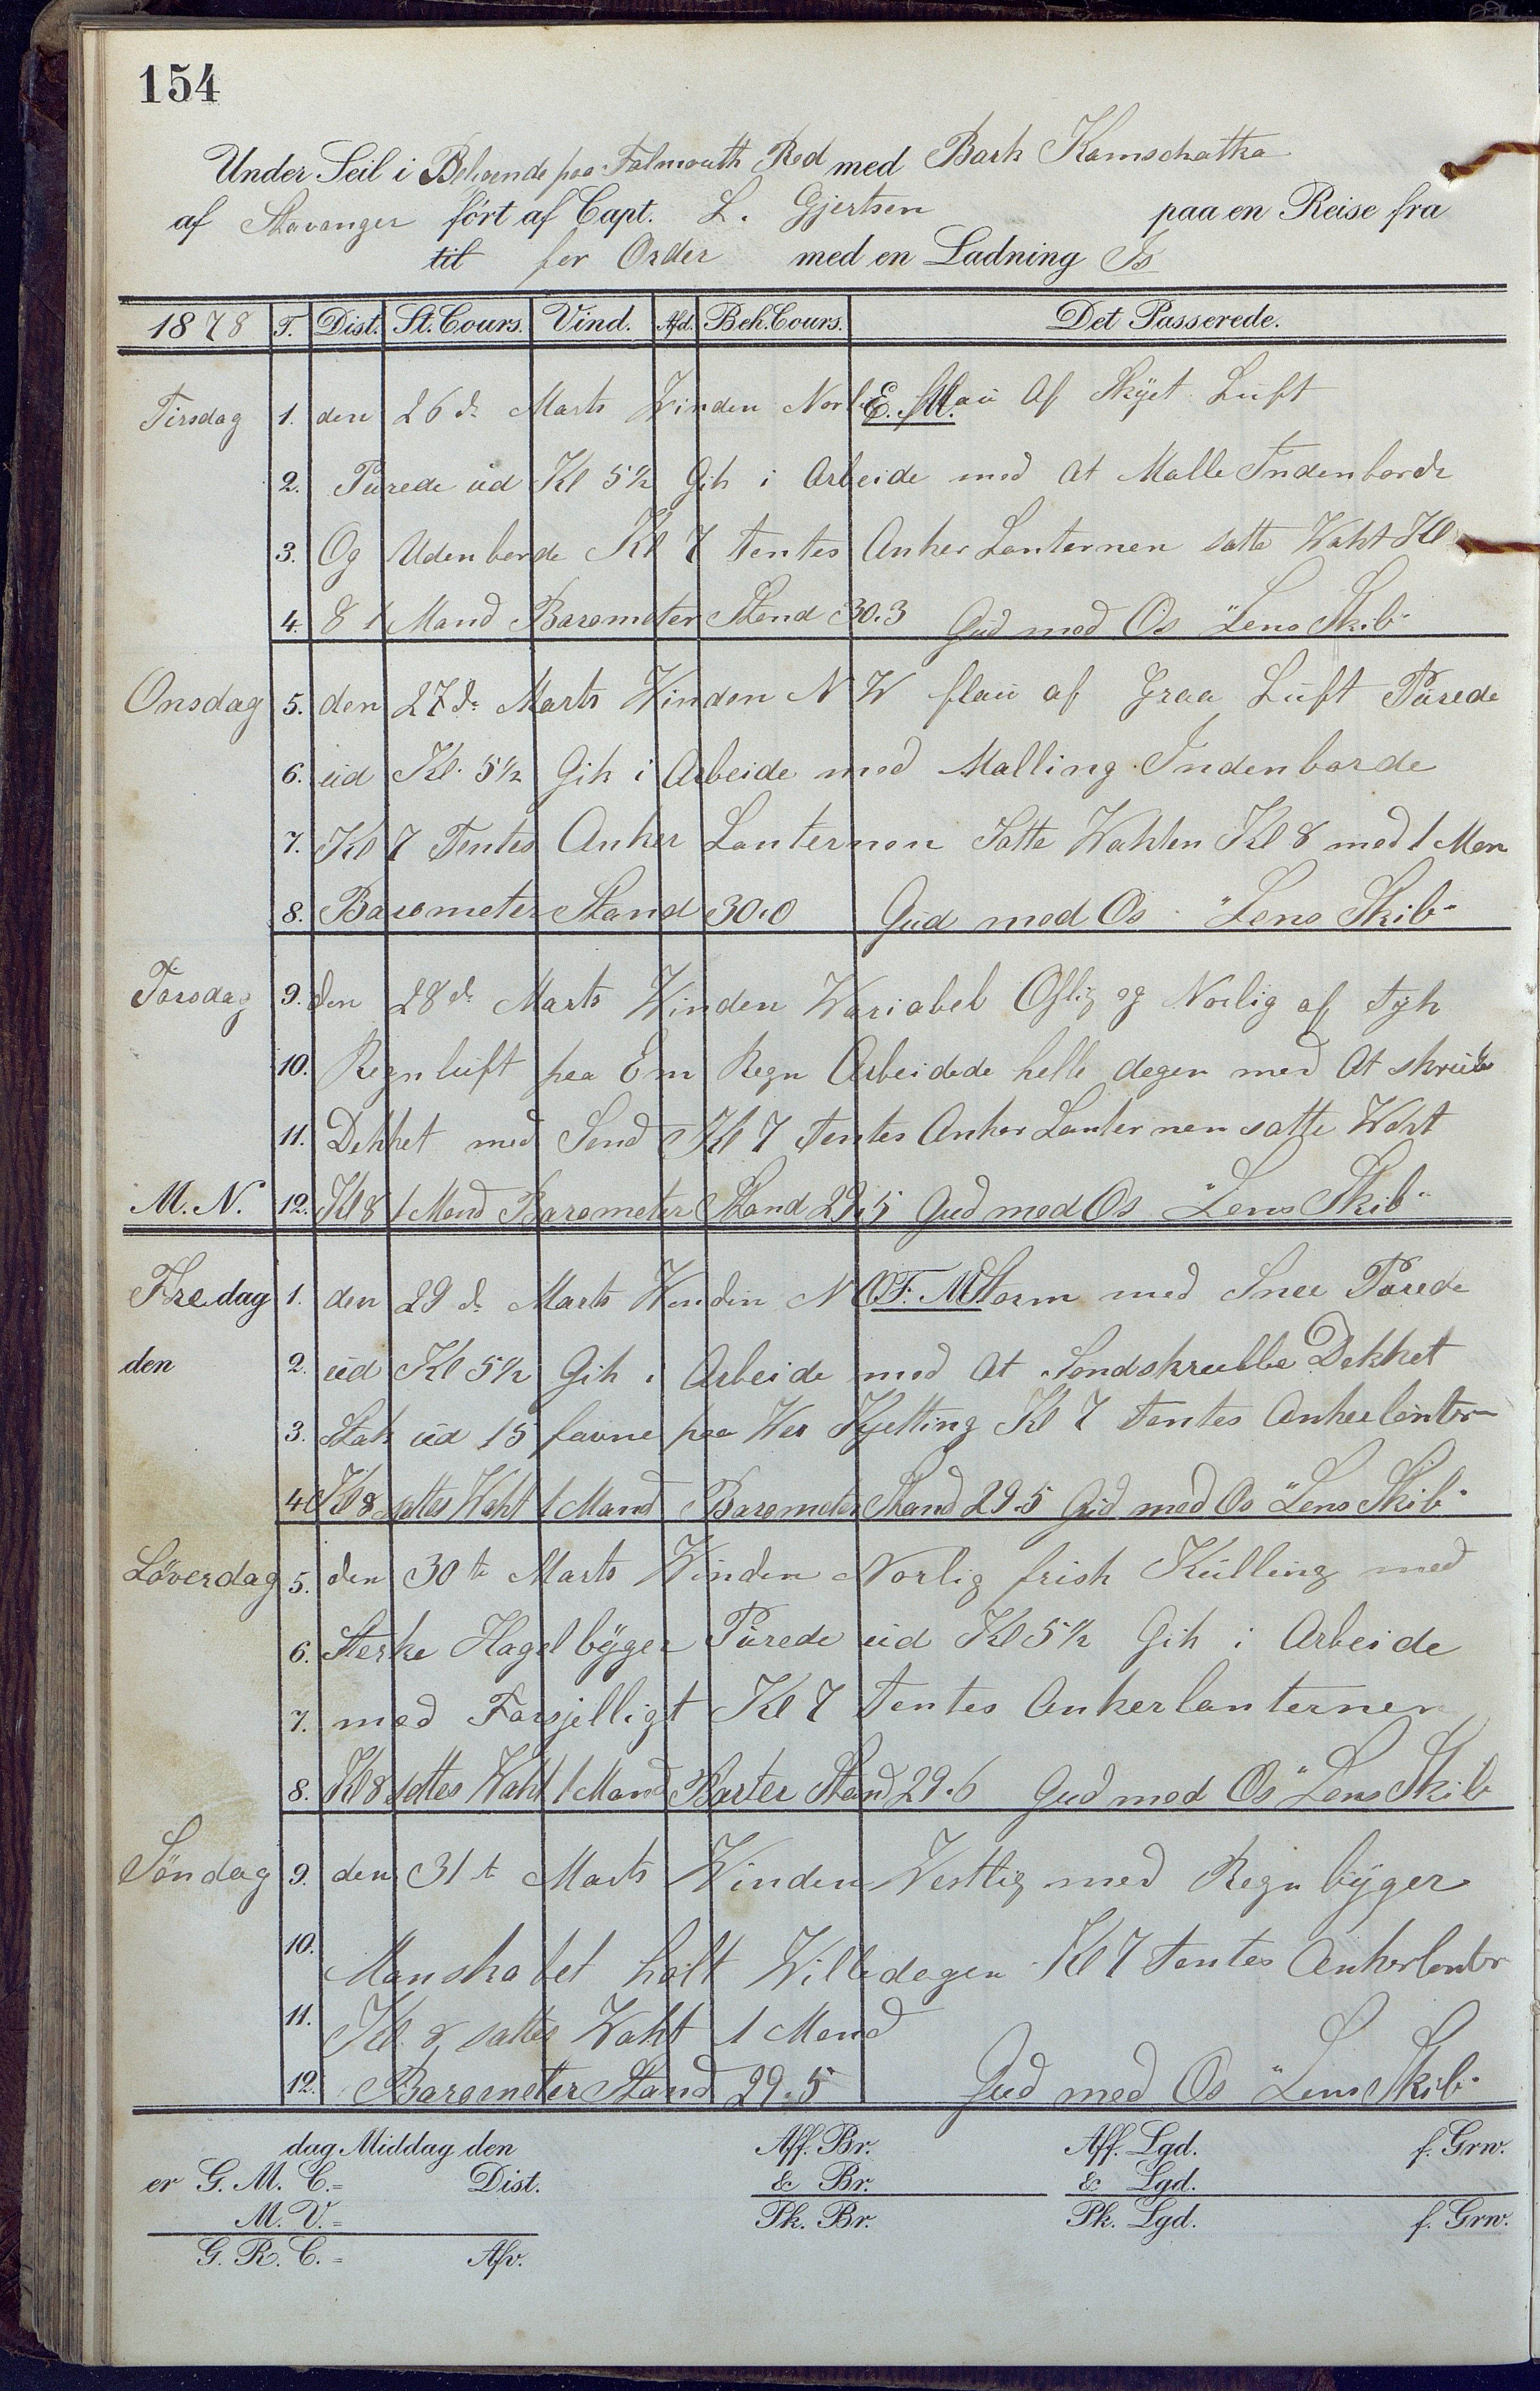 154
Under Seil i Behoende paa Falmouth Red med Bark Kamschatka
af Stavanger ført af Capt. L. Gjertsen paa en Reise fra
til for Order med en Ladning Is
1878 T. Dist. St. Cours. Vind. Afd. Beh. Cours. Det Passerede.
Tirsdag 1. den 26 d. Marts Winden Norl E. M. flau Af Skyet Luft
2. Purede ud Kl 5½ Gik i Arbeide med At Malle Indenbords
3. Og Udenborde Kl 7 tentes Anker Lanternen satte Wakt Kl
4. 8 1 Mand Barometer Stand 30.3 Gud med Os "Lens Skib"
Onsdag 5. den 27 d. Marts Winden N W flau af Graa Luft Purede
6. ud Kl. 5½ Gik i Arbeide med Malling Indenborde
7. Kl 7 Tentes Anker Lanternen Satte Wakten Kl 8 med 1 Man
8. Barometer Stand 30.0 Gud med Os "Lens Skib"
Torsdag 9. den 28 d. Marts Winden Wariabel Ostlig og Norlig af Tyk
10. Regnluft paa Em Regn Arbeidede helle dagen med At skrube
11. Dekket med Sand Kl 7 tentes Anker Lanternen satte Wakt
M. N. 12. Kl 8 1 Mand Barometer Stand 29.5 Gud med Os "Lens Skib"
Fredag 1. den 29 d. Marts Winden N O F. M. Storm med Snee Purede
den 2. ud Kl 5½ Gik i Arbeide med At Sandskrubbe Dekket
3. Stak ud 15 favne paa Wer Kjetting Kl 7 tentes Ankerlantr
4. Kl 8 sattes Wakt 1 Mand Barometer Stand 29.5 Gud med Os "Lens Skib"
Løverdag 5. den 30 te Marts Winden Norlig frisk Kulling med
6. Sterke Hagelbyger Purede ud Kl 5½ Gik i Arbeide
7. med Forsjelligt Kl 7 tentes Ankerlanternen
8. Kl 8 sattes Wakt 1 Mand Barter Stand 29.6 Gud med Os "Lens Skib
Söndag 9. den 31 t. Marts Winden Vestlig med Regnbyger
10. Manskabet holt Willedagen Kl 7 tentes Ankerlantr
11. Kl. 8 sattes Wakt 1 Mand
12. Barometer Stand 29.5 Gud med Os "Lens Skib"
dag Middag den Aff. Br. Aff. Lgd. f. Grw.
er G. M. C.= Dist. & Br. & Lgd.
M. V.= Pk. Br. Pk. Lgd. f. Grw.
G. R. C.= Afv.